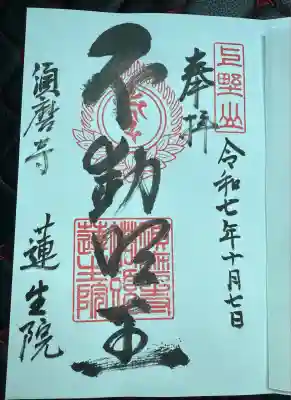 上野山
奉拝
令和七年十月七日
不動明王
須磨寺 蓮生院